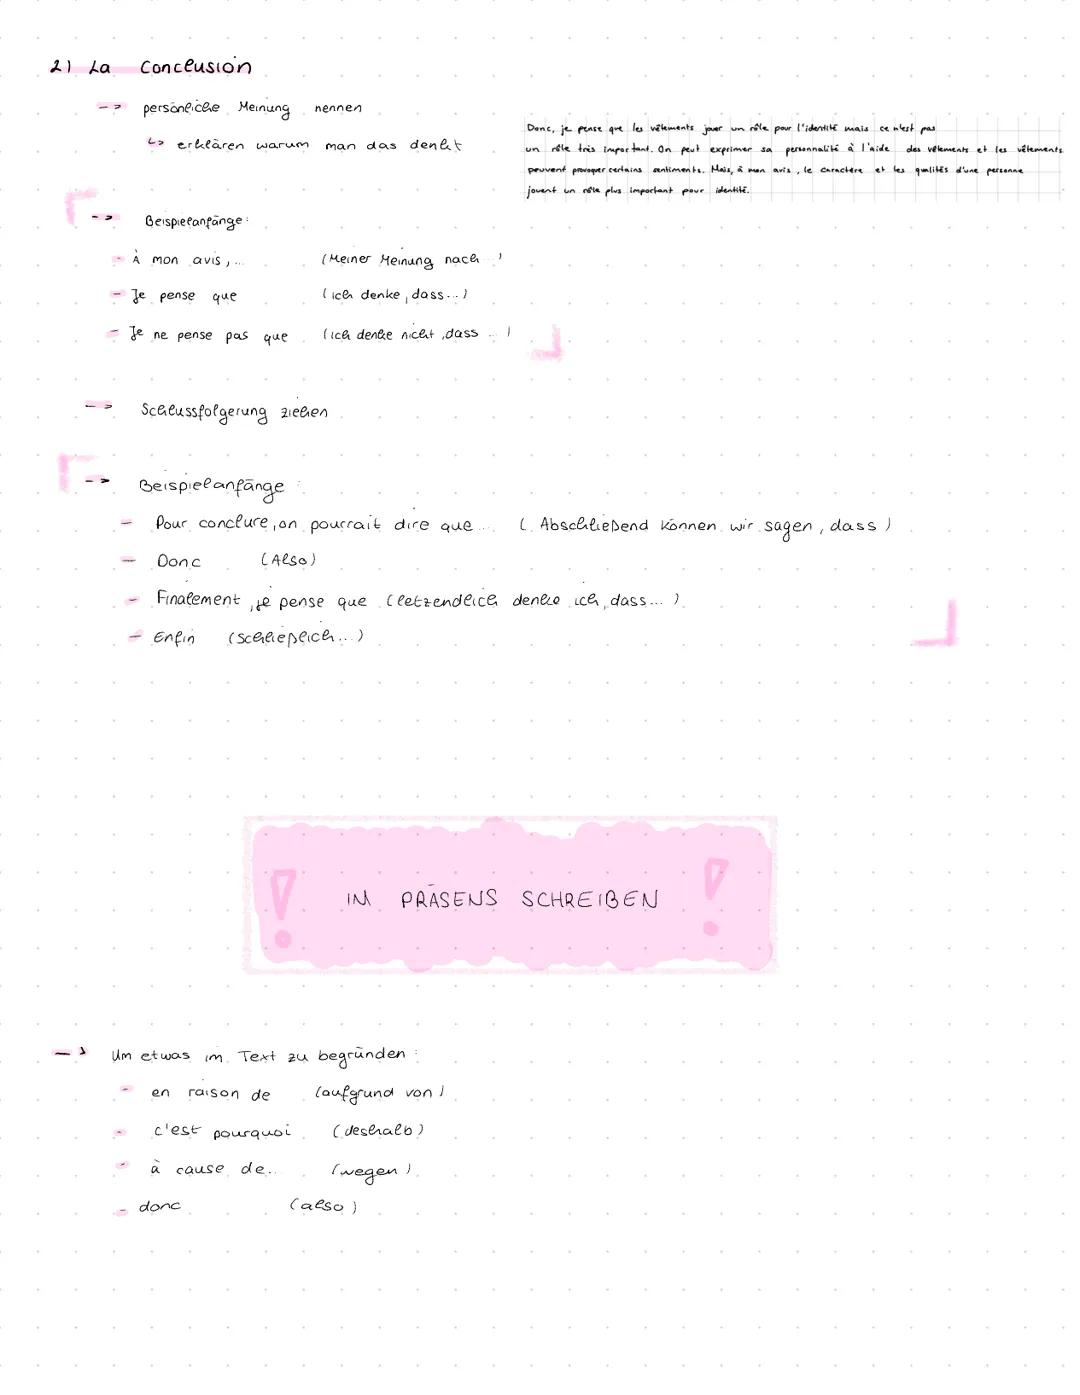 2) La Conclusion
--> persönliche Meinung nennen
↳ erklären warum man das denkt
Donc, je pense que les vêtements jouer un rôle pour l'identité mais ce n'est pas
un rôle très important. On peut exprimer sa personnalité à l'aide des vêtements et les vêtements
peuvent provoquer certains sentiments. Mais, à mon avis, le caractère et les qualités d'une personne
jouent un rôle plus important pour identité.
--> Beispielanfänge:
- À mon avis,... (Meiner Meinung nach )
- Je pense que (ich denke, dass...)
- Je ne pense pas que (ich denke nicht, dass ...)
--> Schlussfolgerung ziehen
--> Beispielanfänge:
- Pour conclure, on pourrait dire que ... (Abschließend können wir sagen, dass)
- Donc (Also)
- Finalement, je pense que (letzendlich denke ich, dass...)
- Enfin (schließlich...)
! IM PRÄSENS SCHREIBEN !
--> Um etwas im Text zu begründen:
- en raison de (aufgrund von)
- c'est pourquoi (deshalb)
- à cause de... (wegen)
- donc (also)